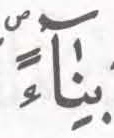 بِنَآءً ص